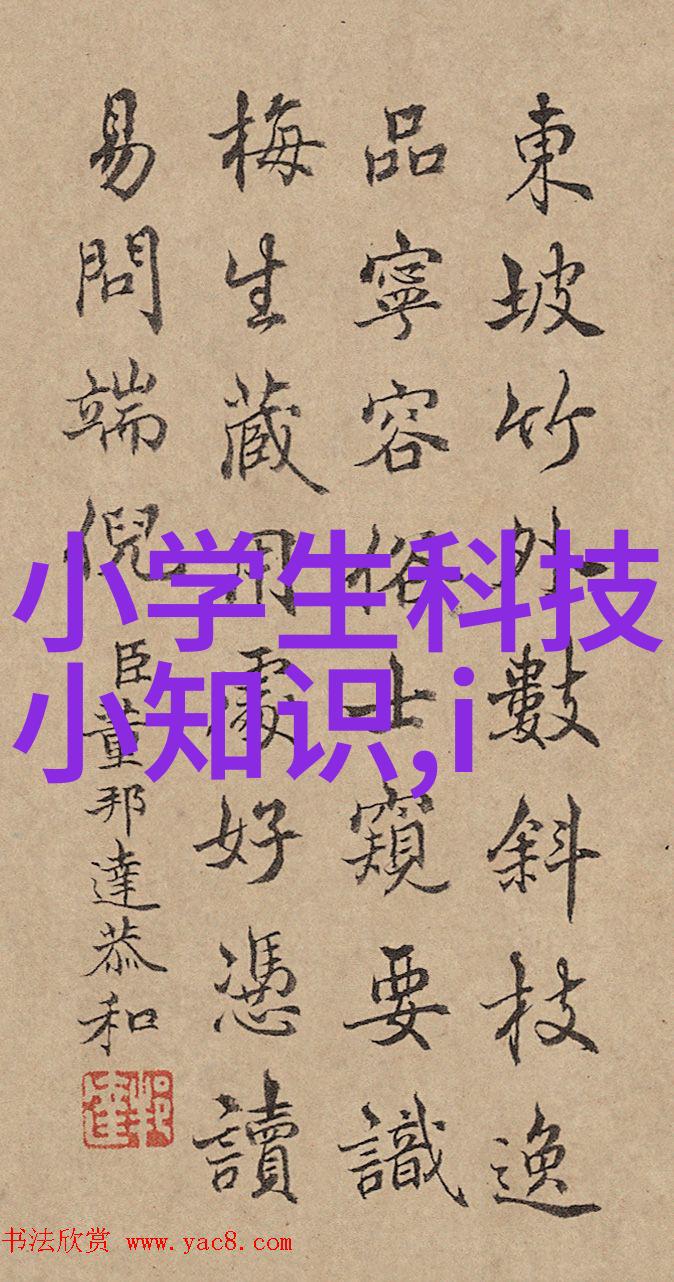 東坡竹外數斜枝逸
品寧容俗士窺要識
梅生蔵用處好憑讀
易問端倪
臣董邦達恭和
小学生科技
小知识,i
书法欣赏 www.yac8.com